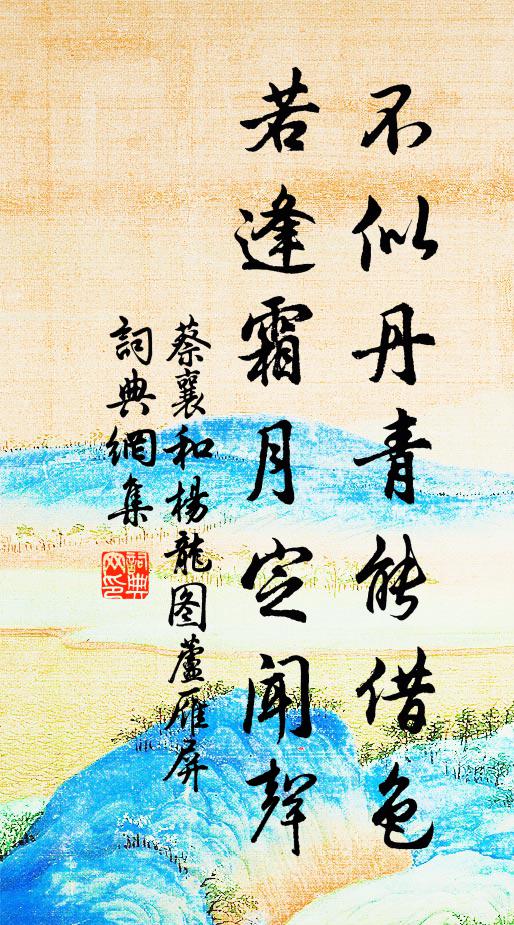 不似丹青能借色
若逢霜月定闻聲
蔡襄和楊龍图蘆雁屏
詞典網集
詞典
网印